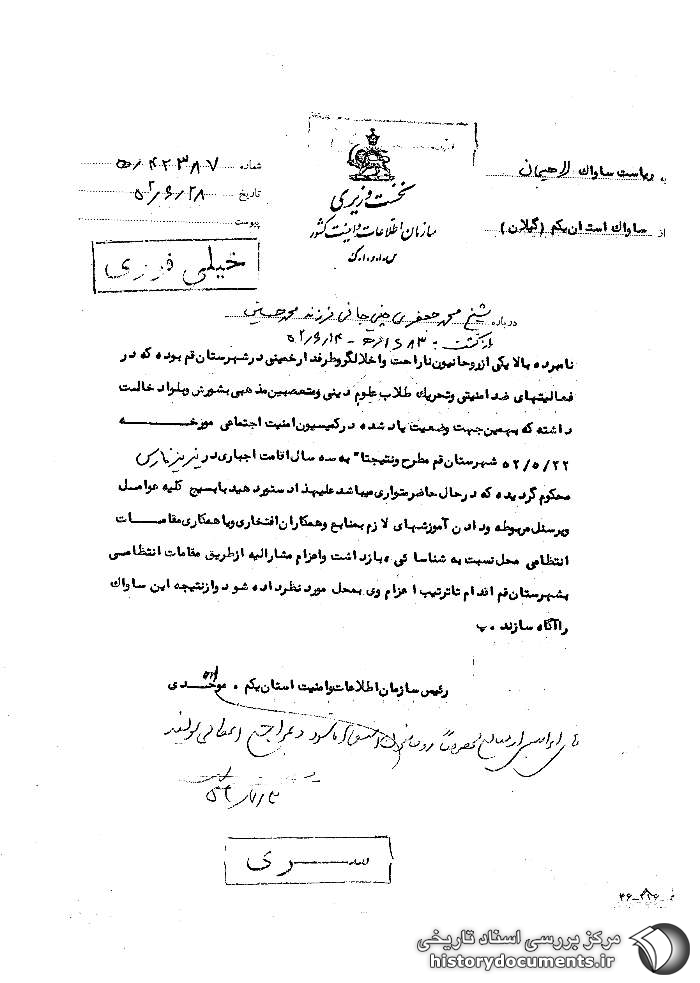 به ریاست ساواک لاهیجان
از ساواک استان یکم (گیلان)
نخست وزیری
سازمان اطلاعات و امنیت کشور
س.ا.و.ا.ک
شماره ۴۲۳۸۷/ه
تاریخ ۵۲/۶/۲۸
پیوست
خیلی فوری
درباره شیخ محمد جعفری چینی جانی فرزند محمدحسین
نامبرده بالا یکی از روحانیون ناراحت و اخلالگر و طرفدار خمینی در شهرستان قم بوده که در
فعالیتهای ضد امنیتی و تحریک طلاب علوم دینی و متعصبین مذهبی بشورش و بلوا دخالت
داشته که بهمین جهت وضعیت یاد شده در کمیسیون امنیت اجتماعی مورخه
۵۲/۵/۲۲ شهرستان قم مطرح و نتیجتا" به سه سال اقامت اجباری در نی ریز فارس
محکوم گردیده که در حال حاضر متواری میباشد علیهذا دستور دهید با بسیج کلیه عوامل
و پرسنل مربوطه و دادن آموزشهای لازم بمنابع و همکاران افتخاری و با همکاری مقامات
انتظامی محل نسبت به شناسائی، بازداشت و اعزام مشارالیه از طریق مقامات انتظامی
بشهرستان قم اقدام تا ترتیب اعزام وی بمحل مورد نظر داده شود و از نتیجه این ساواک
را آگاه سازند. پ
رئیس سازمان اطلاعات و امنیت استان یکم.
سری
historydocuments.ir مرکز بررسی اسناد تاریخی